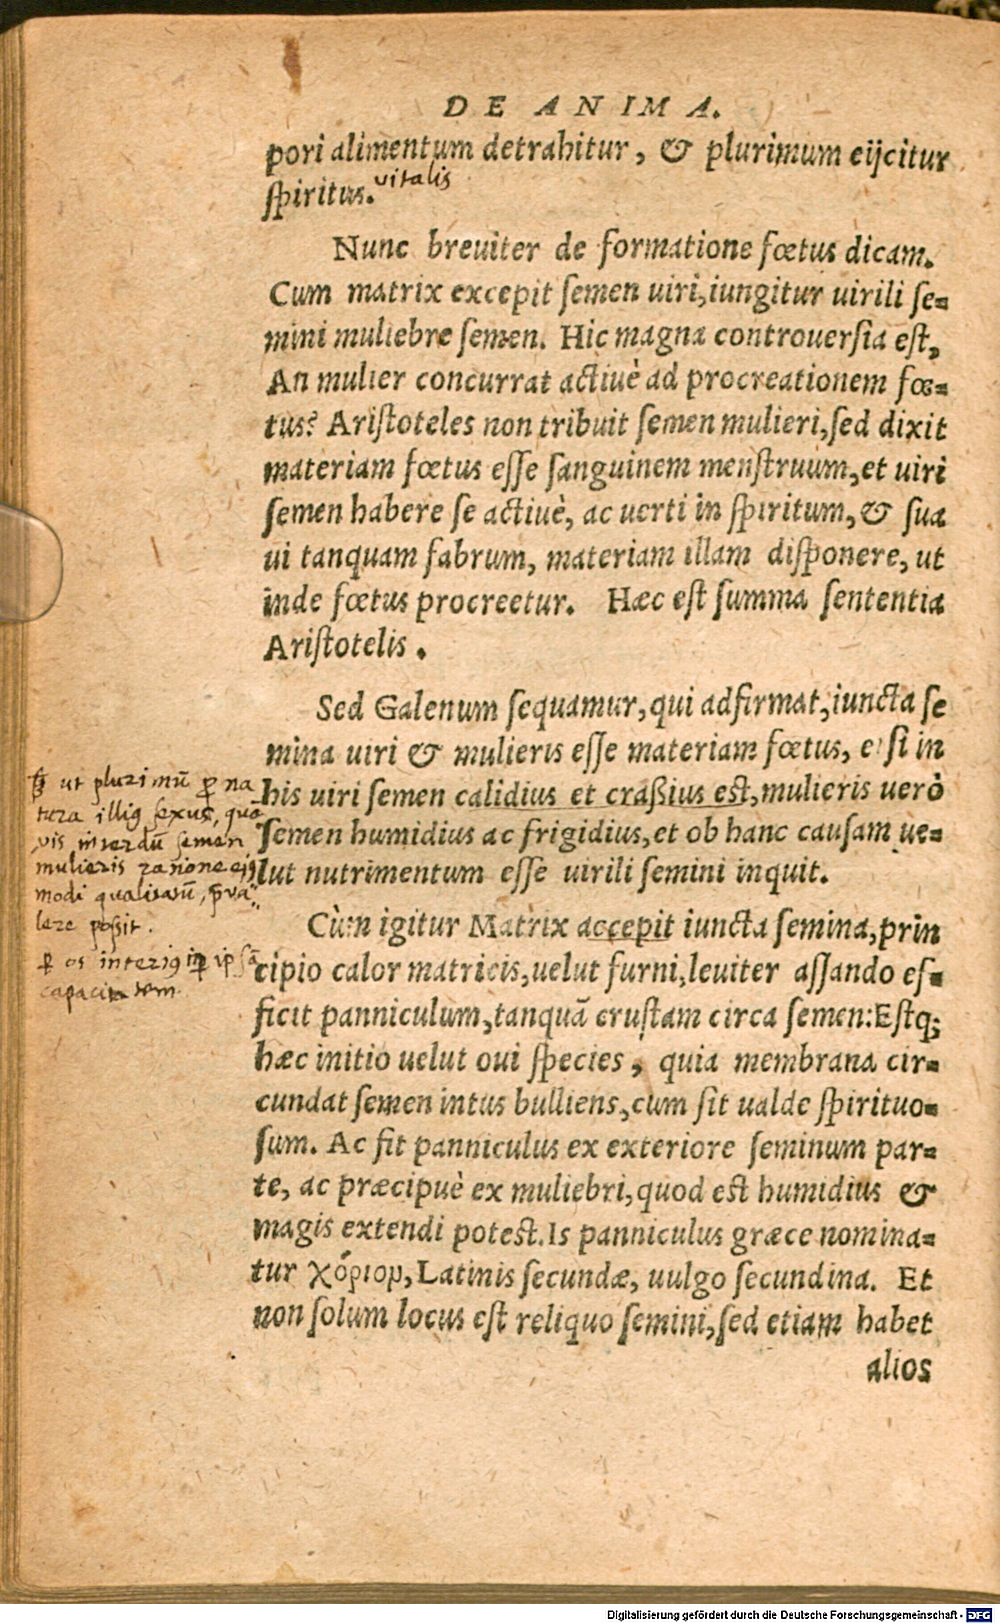 DE ANIMA.
pori alimentum detrahitur, & plurimum eijcitur
spiritus. vitalis
Nunc breuiter de formatione fœtus dicam.
Cum matrix excepit semen uiri, iungitur uirili se-
mini muliebre semen. Hic magna controuersia est,
An mulier concurrat actiuè ad procreationem fœ-
tus? Aristoteles non tribuit semen mulieri, sed dixit
materiam fœtus esse sanguinem menstruum, et uiri
semen habere se actiuè, ac uerti in spiritum, & sua
ui tanquam fabrum, materiam illam disponere, ut
inde fœtus procreetur. Hæc est summa sententia
Aristotelis.
Sed Galenum sequamur, qui adfirmat, iuncta se
mina uiri & mulieris esse materiam fœtus, etsi in
his uiri semen calidius et craßius est, mulieris uerò
semen humidius ac frigidius, et ob hanc causam ue-
lut nutrimentum esse uirili semini inquit.
Cùm igitur Matrix accepit iuncta semina, prin
cipio calor matricis, uelut furni, leuiter assando ef-
ficit panniculum, tanquã crustam circa semen: Estq;
hæc initio uelut oui species, quia membrana cir-
cundat semen intus bulliens, cum sit ualde spirituo-
sum. Ac fit panniculus ex exteriore seminum par-
te, ac præcipuè ex muliebri, quod est humidius &
magis extendi potest. Is panniculus græce nomina-
tur χόριον, Latinis secundæ, uulgo secundina. Et
non solum locus est reliquo semini, sed etiam habet
alios
ut plurimũ p na
tura illiq sexus, quã
vis interdũ semen
mulieris ratione eiq
modi qualitatũ, prva-
lere possit.
p os interiq in ipsã
capacitatem.
Digitalisierung gefördert durch die Deutsche Forschungsgemeinschaft - DFG